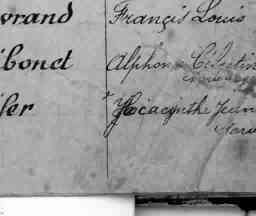 vrand Francis Louis
bonet Alphonse Célestin
ler Hiacinthe Jean